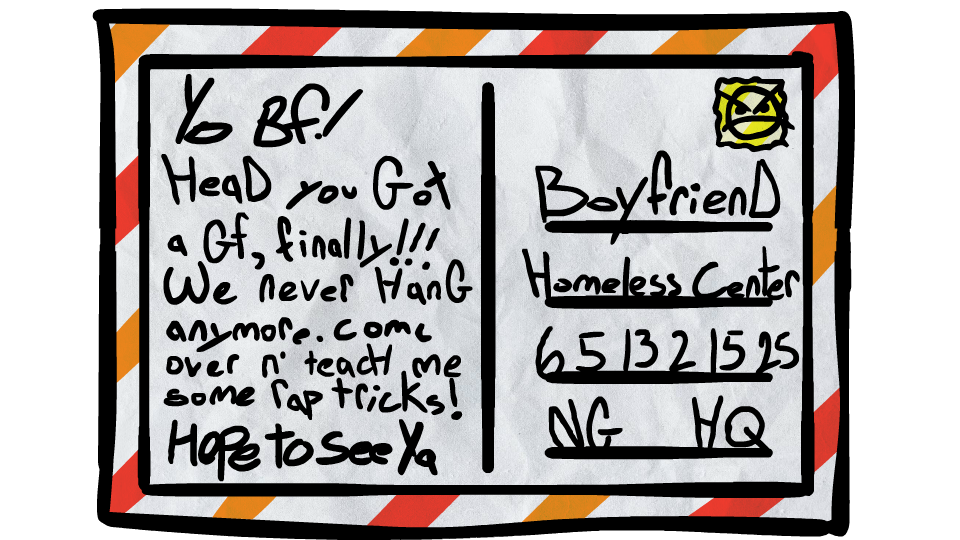 Yo Bf!
HeaD you Got
a Gf, finally!!!
We never HanG
anymore. come
over n' teacH me
some rap tricks!
Hope to see Ya
BoyfrienD
Homeless Center
6 5 13 2 15 25
NG HQ